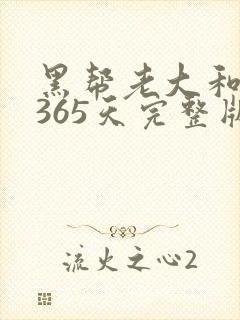 黑帮老大和
365天完整版
流火之心2